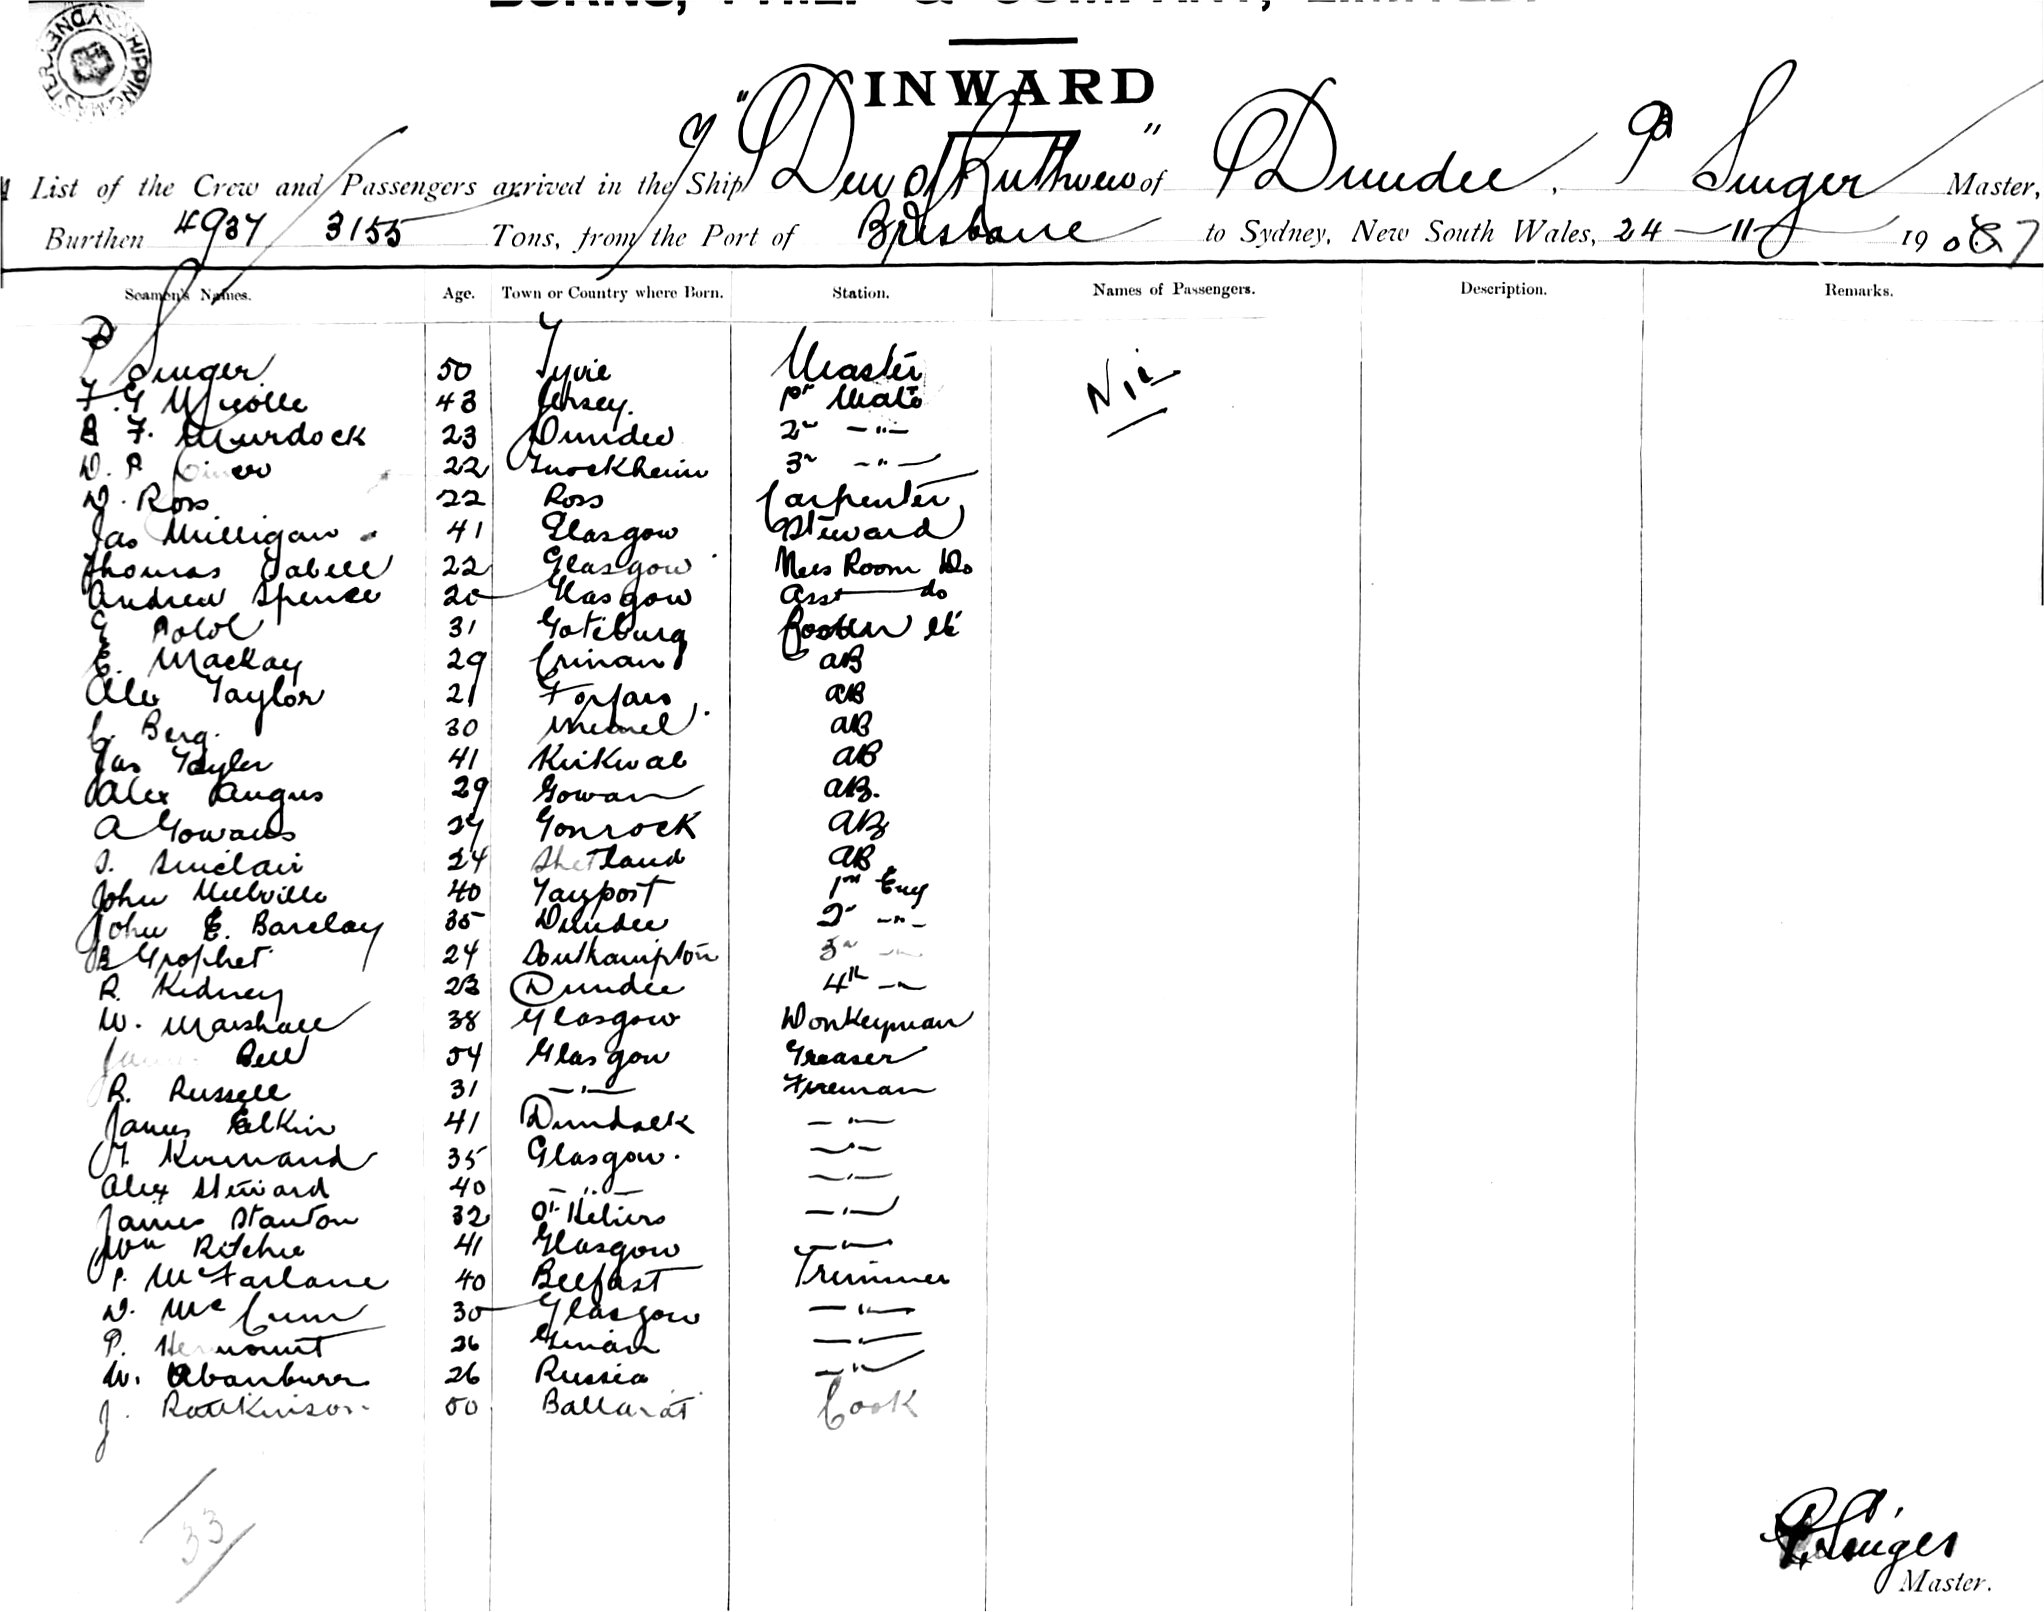 BURNS, PHILP & COMPANY, LIMITED.
SYDNEY SHIPPING MASTER
INWARD
List of the Crew and Passengers arrived in the Ship "Den of Ruthven" of Dundee, P Singer Master,
Burthen 4937 / 3155 Tons, from the Port of Brisbane to Sydney, New South Wales, 24 - 11 - 1907
Seamen's Names. Age. Town or Country where Born. Station. Names of Passengers. Description. Remarks.
P Singer 50 Fyvie Master Nil
F. G Nicolle 43 Jersey. 1st Mate
B F. Murdock 23 Dundee 2nd -"-
D. P 22 3rd -"-
D. Ross 22 Ross Carpenter
Jas Milligan 41 Glasgow Steward
Thomas 22 Glasgow Mess Room Do
Andrew Spence 20 Glasgow Asst do
31 Goteburg
E. Mackay 29 Crinan AB
Alex Taylor 21 Forfar AB
C. Berg. 30 Memel AB
Jas Tayler 41 Kirkwal AB
Alex Angus 29 Gowan AB.
A Gowans 27 Gonrock AB
S. Sinclair 24 Shetland AB
John Melville 40 Tayport 1st Eng
John E. Barclay 35 Dundee 2nd -"-
B Grophet 24 Southampton 3rd -"-
R. Kidney 23 Dundee 4th -"-
W. Marshall 38 Glasgow Donkeyman
James Bell 54 Glasgow Greaser
R. Russell 31 -"- Fireman
James Elkin 41 Dundalk -"-
Kinnand 35 Glasgow. -"-
Alex Steward 40 -"- -"-
James Stanton 32 St Heliers -"-
Wm Ritchie 41 Glasgow -"-
P. McFarlane 40 Belfast Trimmer
D. McCunn 30 Glasgow -"-
P. Hermount 26 -"-
W. Abanburr 26 Russia -"-
J. Rawkinson. 50 Ballarat Cook
33
P. Singer
Master.